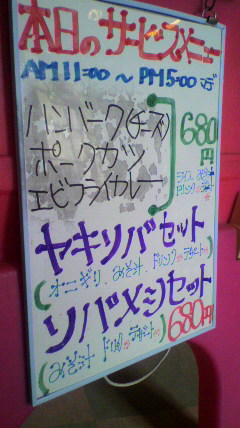 本日のサービスメニュー
AM11:00 ～ PM5:00 マデ
ハンバーク(チーズ)
ポークカツ
エビフライカレー
680円
ライス みそ汁
ドリンク
ヤキソバセット
(オニギリ、みそ汁、ドリンク、デザート)
ソバメシセット
(みそ汁 ドリンク デザート)
680円